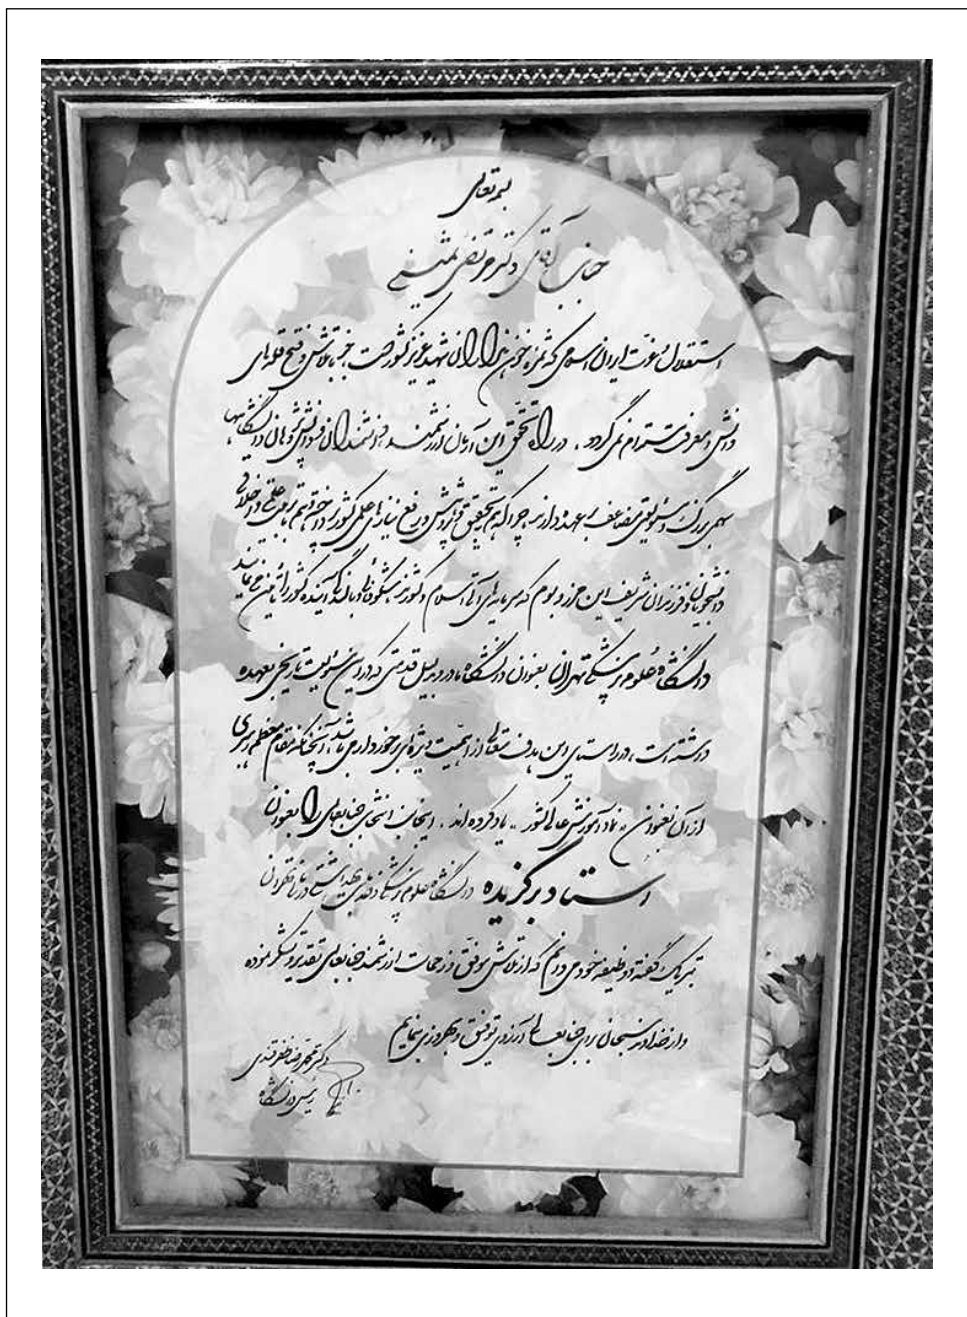 بسمه تعالی
جناب آقای دکتر مرتضی
استقلال و عزت ایران اسلامی که ثمره خون هزاران شهید عزیز کشور است جز با تلاش و فتح قله های
دانش و معرفت مستدام نمی گردد . در راه تحقق این آرمان ارزشمند دانشمندان و دانش پژوهان دانشگاهها
سهمی بزرگ و مسئولیتی مضاعف به عهده دارند چرا که هم تحقیق و پژوهش در رفع نیازهای علمی کشور و هم تربیت علمی و اخلاقی
دانشجویان و فرزندان شریف این مرز و بوم که سرمایه های آتی اسلام و کشورند شکوفائی و بالندگی آینده کشور را تضمین می نماید
دانشگاه علوم پزشکی تهران بعنوان دانشگاه مادر و بدلیل قدمتی که در این مسئولیت تاریخی بعهده
داشته است، در راستای این هدف متعالی از اهمیت ویژه ای برخوردار می باشد آنچنانکه مقام معظم رهبری
از آن بعنوان " نماد آموزش عالی کشور " یاد کرده اند . اینجانب انتخاب جنابعالی را بعنوان
استاد برگزیده دانشگاه علوم پزشکی و خدمات بهداشتی درمانی تهران
تبریک گفته و وظیفه خود می دانم که از تلاش موفق و زحمات ارزشمند جنابعالی تقدیر و تشکر نموده
و از خداوند سبحان برای جنابعالی آرزوی توفیق و بهروزی بنمایم
دکتر محمدرضا ظفرقندی
رئیس دانشگاه